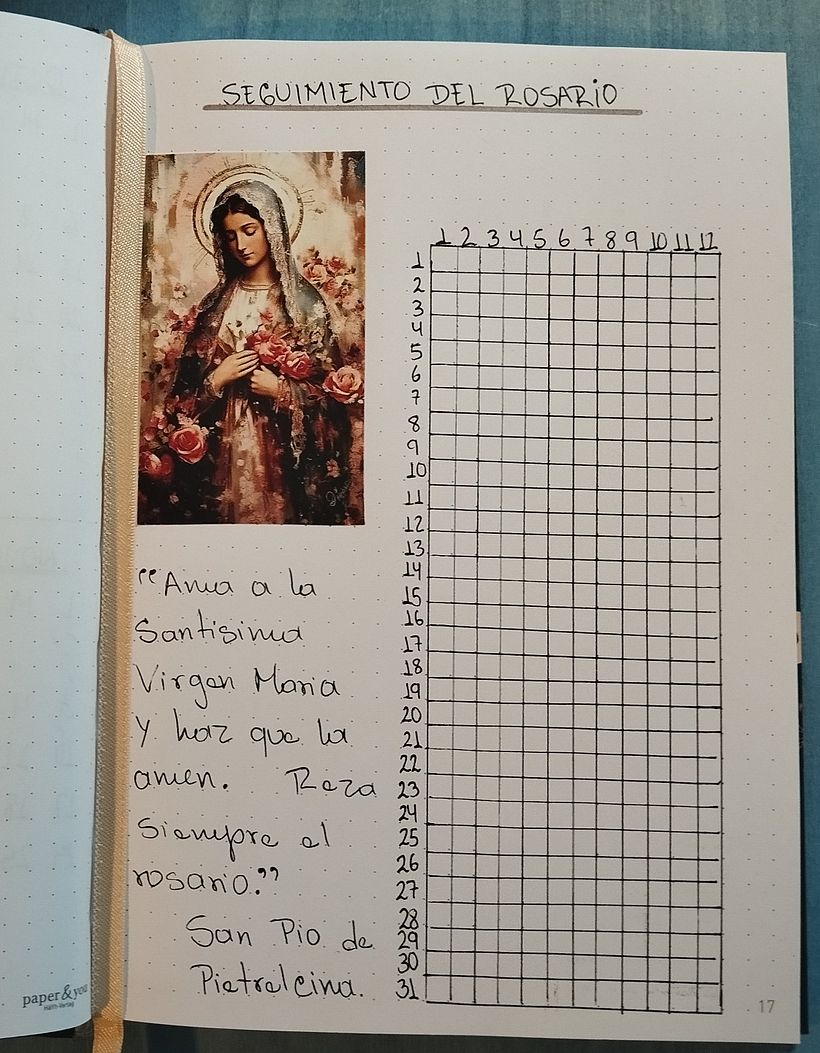 SEGUIMIENTO DEL ROSARIO
1 2 3 4 5 6 7 8 9 10 11 12
1
2
3
4
5
6
7
8
9
10
11
12
13
14
15
16
17
18
19
20
21
22
23
24
25
26
27
28
29
30
31
"Ama a la
Santisima
Virgen Maria
y haz que la
amen. Reza
siempre el
rosario."
San Pio de
Pietrelcina.
paper & you
Häfft-Verlag
17